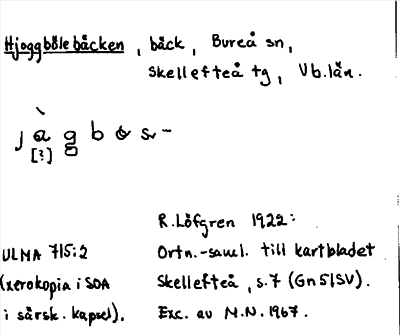 Hjoggbölebäcken, bäck, Bureå sn,
Skellefteå tg, Vb.län.
[?]
R. Löfgren 1922:
ULMA 715:2 Ortn.-saml. till kartbladet
(xerokopia i SOA Skellefteå, s.7 (Gn51SV).
i särsk. kapsel). Exc. av M.N. 1967.